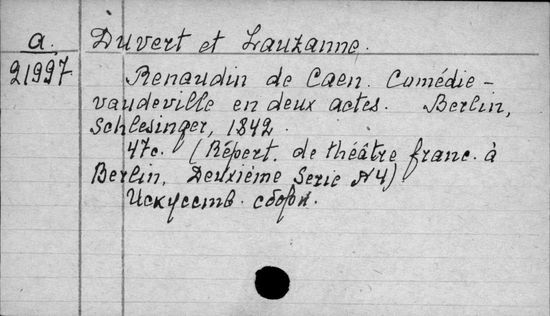 a.
21997
Duvert et Lauzanne.
Renaudin de Caen. Comédie-
vaudeville en deux actes. Berlin,
Schlesinger, 1842.
47c. (Répert. de théâtre franc. à
Berlin, Deuxième Serie N4)
Искусств. сборн.